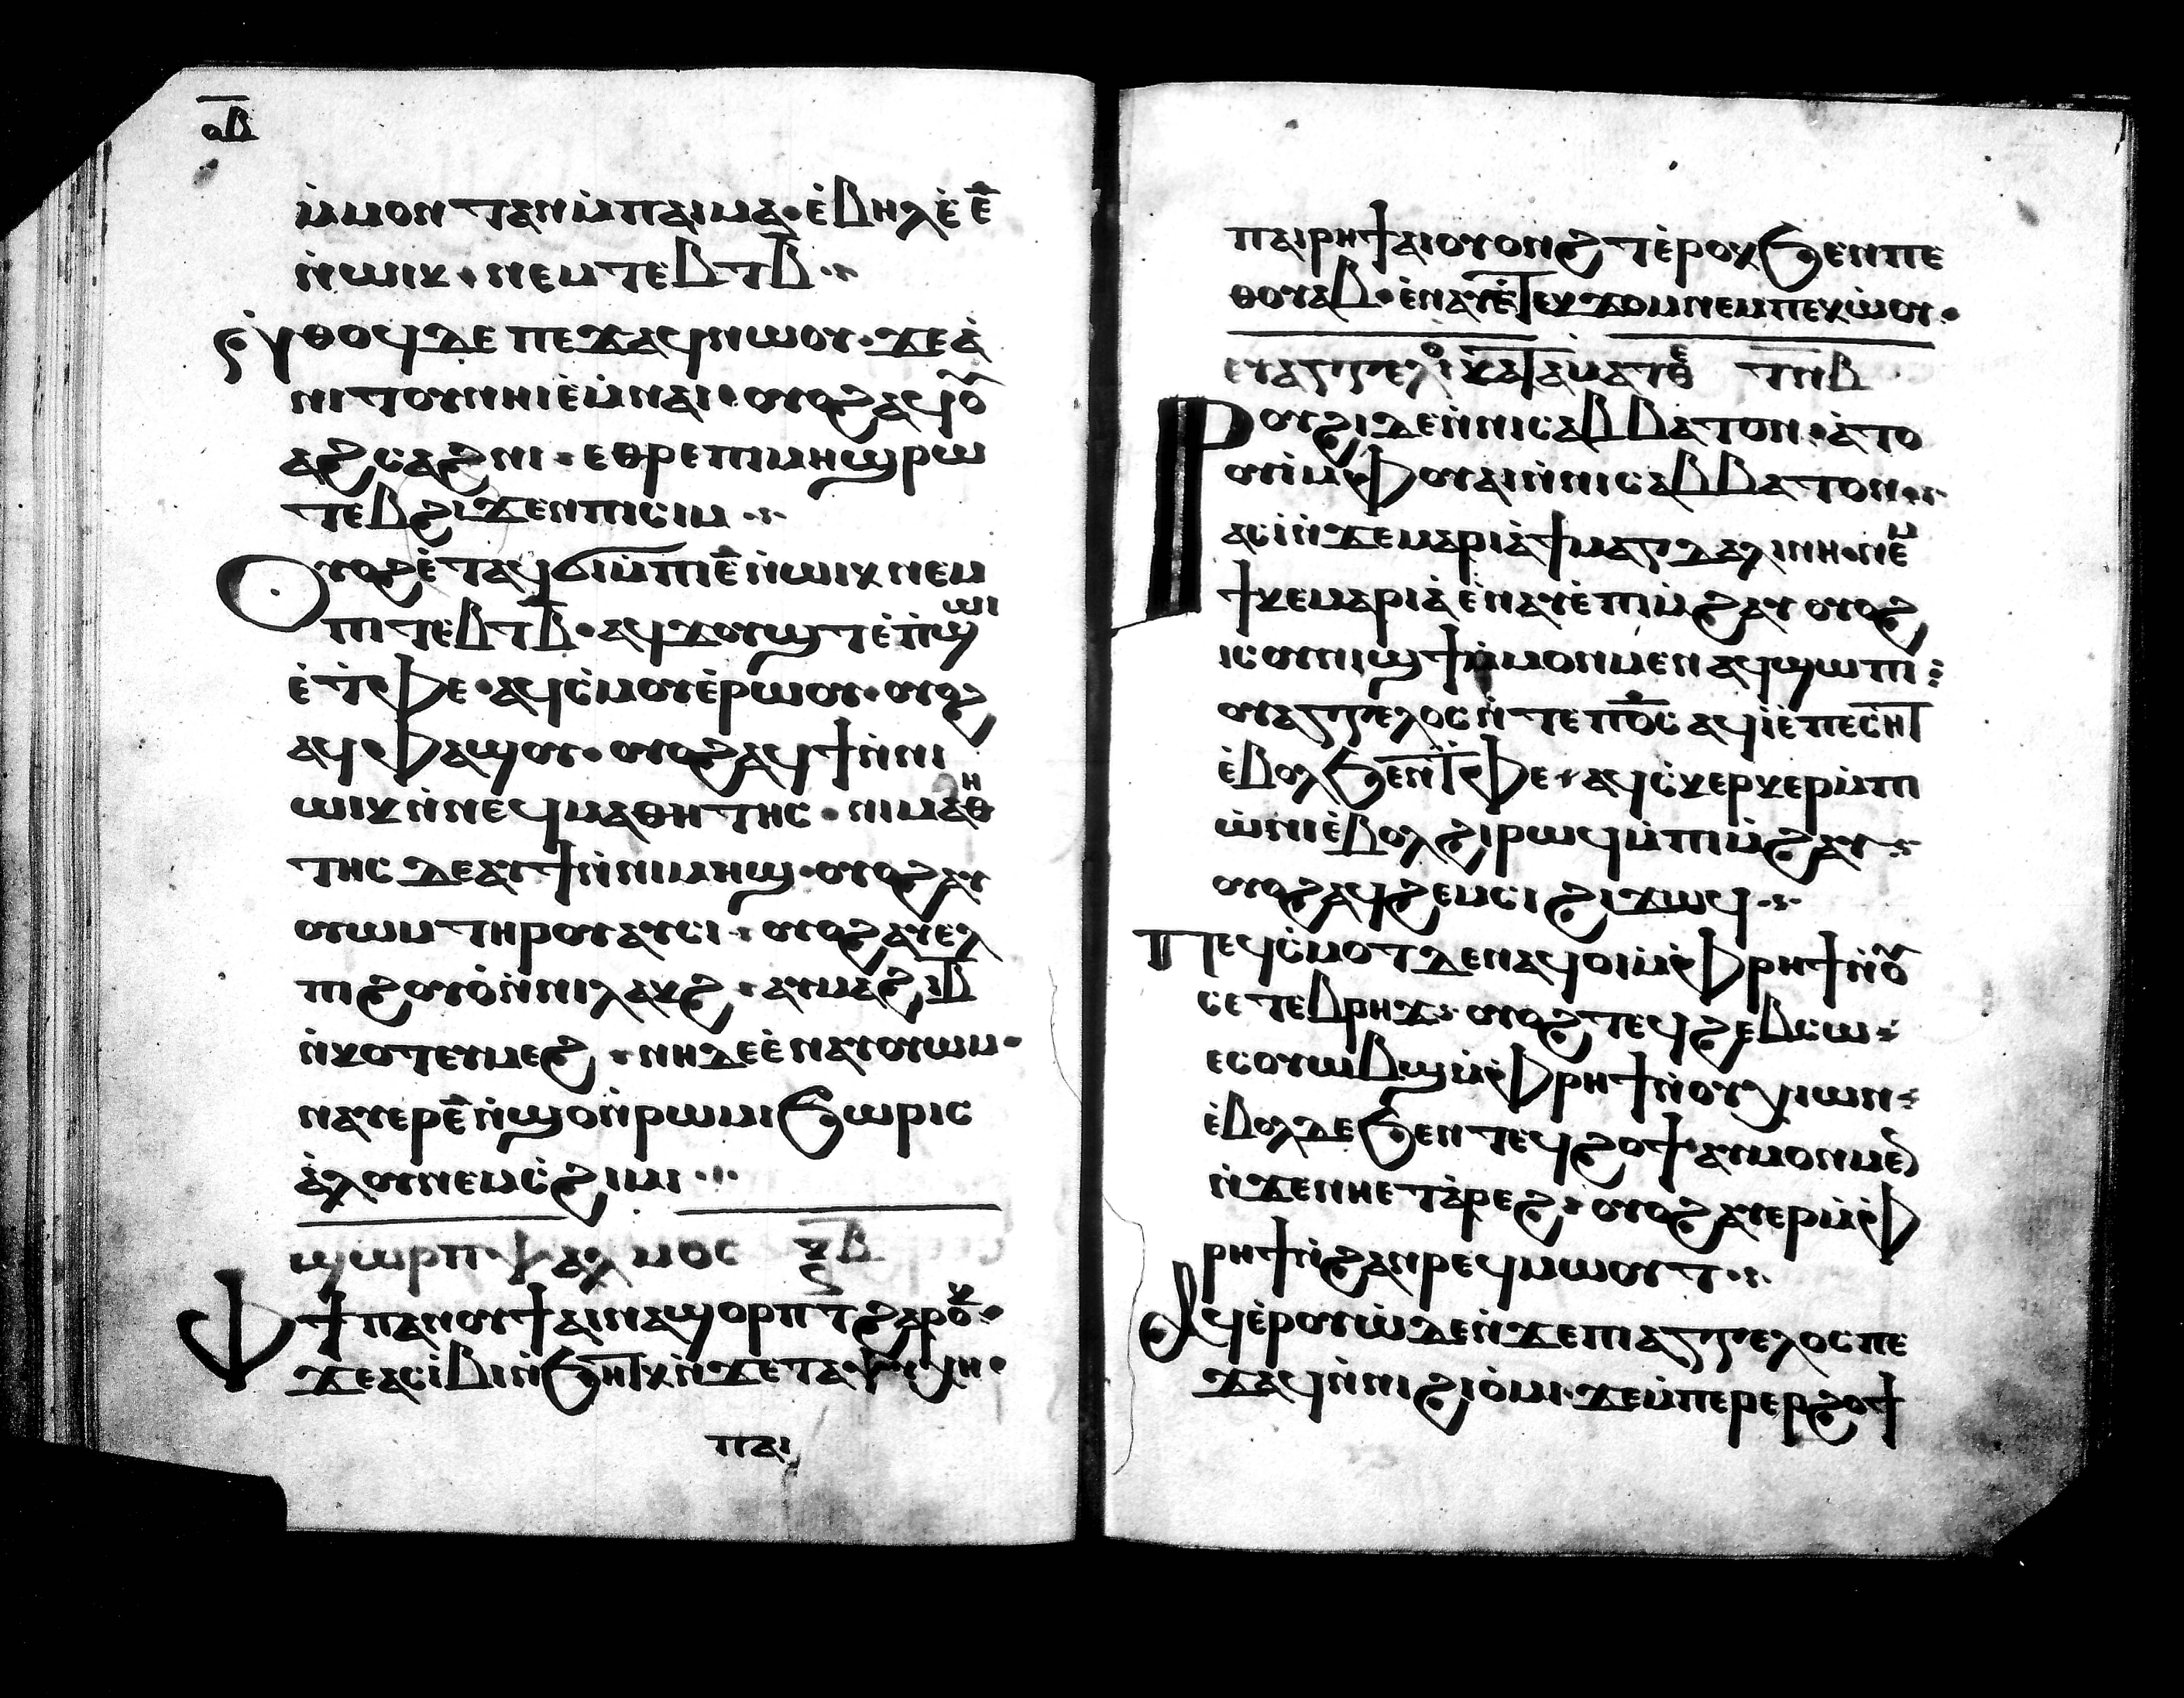 ⲟⲃ̅
ⲙ̇ⲙⲟⲛ ⲧⲁⲛ ⲙ̇ⲡⲁⲓⲙⲁ · ⲉ̇ⲃⲏⲗ ⲉ̇ ⲉ̅
ⲛ̇ⲱⲓⲕ · ⲛⲉⲙ ⲧⲉⲃⲧ ⲃ̅ ·
ⲛ̇ⲑⲟϥ ⲇⲉ ⲡⲉϫⲁϥ ⲛⲱⲟⲩ · ϫⲉ ⲁ̇
ⲛⲓⲧⲟⲩ ⲛⲏⲓ ⲉ̇ⲙⲛⲁⲓ · ⲟⲩⲟϩ ⲁϥⲟ̅ⲩ
ⲁϩⲥⲁϩⲛⲓ · ⲉⲑⲣⲉ ⲡⲓⲙⲏϣ ⲣⲱ
ⲧⲉⲃ ϩⲓϫⲉⲛ ⲡⲓⲥⲓⲙ ·
Ⲟⲩⲟϩ ⲉ̇ⲧⲁϥϭⲓ ⲙ̇ⲡⲓⲉ̅ ⲛ̇ⲱⲓⲕ ⲛⲉⲙ
ⲡⲓⲧⲉⲃⲧ ⲃ̅ · ⲁϥϫⲟⲩϣⲧ ⲉ̇ⲡ̇ϣⲱⲓ
ⲉ̇ ⲧ̇ⲫⲉ · ⲁϥⲥ̇ⲙⲟⲩ ⲉ̇ⲣⲱⲟⲩ · ⲟⲩⲟϩ
ⲁϥⲫⲁϣⲟⲩ · ⲟⲩⲟϩ ⲁϥϯ ⲛ̇ⲛⲓ
ⲱⲓⲕ ⲛ̇ⲛⲉϥⲙⲁⲑⲏⲧⲏⲥ · ⲛⲓⲙⲁⲑⲏ
ⲧⲏⲥ ⲇⲉ ⲁⲩϯ ⲛ̇ⲛⲓⲙⲏϣ · ⲟⲩⲟϩ ⲁⲩ
ⲟⲩⲱⲙ ⲧⲏⲣⲟⲩ ⲁⲩⲥⲓ · ⲟⲩⲟϩ ⲁⲩⲉⲗ
ⲡⲓϩⲟⲩⲟ̇ ⲛ̇ⲛⲓⲗⲁⲕϩ · ⲁⲩⲙⲁϩ ⲓⲃ̅
ⲛ̇ⲕⲟⲧ ⲉⲩⲙⲉϩ · ⲛⲏ ⲇⲉ ⲉ̇ⲛⲁⲩⲟⲩⲱⲙ ·
ⲛⲁⲩⲉⲣ ⲉ̅ ⲛ̇ϣⲟ ⲛ̇ⲣⲱⲙⲓ ϧⲱⲣⲓⲥ
ⲁ̇ⲗⲟⲩ ⲛⲉⲙ ⲥ̇ϩⲓⲙⲓ ·
ϣⲱⲣⲡ ⲯⲁⲗⲙⲟⲥ ⲝⲃ̅
Ⲫϯ ⲡⲁⲛⲟⲩϯ ⲁⲓⲛⲁϣⲟⲣⲡⲧ ϩⲁⲣⲟⲕ ·
ϫⲉ ⲁⲥⲓ̇ⲃⲓ ⲛ̇ϧⲏⲧⲕ ⲛ̇ϫⲉ ⲧⲁⲯⲩⲭⲏ ·
ⲡⲁⲓ
ⲡⲁⲓⲣⲏϯ ⲁⲓⲟⲩⲟⲛϩⲧ ⲉ̇ⲣⲟⲕ ϧⲉⲛ ⲡⲉ
ⲑⲟⲩⲁⲃ · ⲉ̇ⲛⲁⲩ ⲉ̇ⲧⲉⲕϫⲟⲙ ⲛⲉⲙ ⲡⲉⲕⲱ̇ⲟⲩ ·
ⲉⲩⲁⲅⲅⲉⲗⲓⲟ ⲕⲁⲧⲁ ⲙⲁⲧⲑⲉ ⲧⲛⲃ
Ⲣⲟⲩϩⲓ ⲇⲉ ⲛ̇ⲛⲓⲥⲁⲃⲃⲁⲧⲟⲛ · ⲁ̇ⲧⲟ
ⲟⲩⲓ̇ ⲙ̇ⲫⲟⲩⲁⲓ ⲛ̇ⲛⲓⲥⲁⲃⲃⲁⲧⲟⲛ ·
ⲁⲥⲓ̇ ⲛ̇ϫⲉ ⲙⲁⲣⲓⲁ̇ ϯⲙⲁⲅⲇⲁⲗⲓⲛⲏ · ⲛⲉⲙ
ϯⲕⲉⲙⲁⲣⲓⲁ̇ ⲉ̇ⲛⲁⲩ ⲉ̇ⲡⲓⲙ̇ϩⲁⲩ ⲟⲩⲟϩ
ⲓⲥ ⲟⲩⲛⲓϣϯ ⲙ̇ⲙⲟⲛⲙⲉⲛ ⲁϥϣⲱⲡⲓ :
ⲟⲩⲁⲅⲅⲉⲗⲟⲥ ⲛ̇ⲧⲉ ⲡⲟ̅ⲥ ⲁϥⲓ̇ ⲉ̇ⲡⲉⲥⲏⲧ
ⲉ̇ⲃⲟⲗ ϧⲉⲛ ⲧ̇ⲫⲉ · ⲁϥⲥ̇ⲕⲉⲣⲕⲉⲣ ⲙ̇ⲡⲓ
ⲱ̇ⲛⲓ ⲉ̇ⲃⲟⲗ ϩⲓⲣⲱϥ ⲙ̇ⲡⲓⲙ̇ϩⲁⲩ ·
ⲟⲩⲟϩ ⲁϥϩⲉⲙⲥⲓ ϩⲓϫⲱϥ ·
Ⲡⲉϥⲥ̇ⲙⲟⲧ ⲇⲉ ⲛⲁϥⲟⲓ ⲙ̇ⲫⲣⲏϯ ⲛ̇ⲟⲩ
ⲥⲉⲧⲉⲃⲣⲏϫ · ⲟⲩⲟϩ ⲧⲉϥϩⲉⲃⲥⲱ ·
ⲉⲥⲟⲩⲱⲃϣ ⲙ̇ⲫⲣⲏϯ ⲛ̇ⲟⲩⲭⲓⲱⲛ ·
ⲉ̇ⲃⲟⲗ ⲇⲉ ϧⲉⲛ ⲧⲉϥϩⲟϯ ⲁⲩⲙⲟⲛⲙⲉⲛ
ⲛ̇ϫⲉ ⲛⲏⲉⲧⲁ̇ⲣⲉϩ · ⲟⲩⲟϩ ⲁⲩⲉⲣ ⲙ̇ⲫ
ⲣⲏϯ ⲛ̇ϩⲁⲛⲣⲉϥⲙⲱⲟⲩⲧ ·
Ⲁϥⲉ̇ⲣⲟⲩⲱ̇ ⲇⲉ ⲛ̇ϫⲉ ⲡⲓⲁⲅⲅⲉⲗⲟⲥ ⲡⲉ
ϫⲁϥ ⲛ̇ⲛⲓϩⲓⲟ̇ⲙⲓ · ϫⲉ ⲙ̇ⲡⲉⲣⲉⲣϩⲟϯ